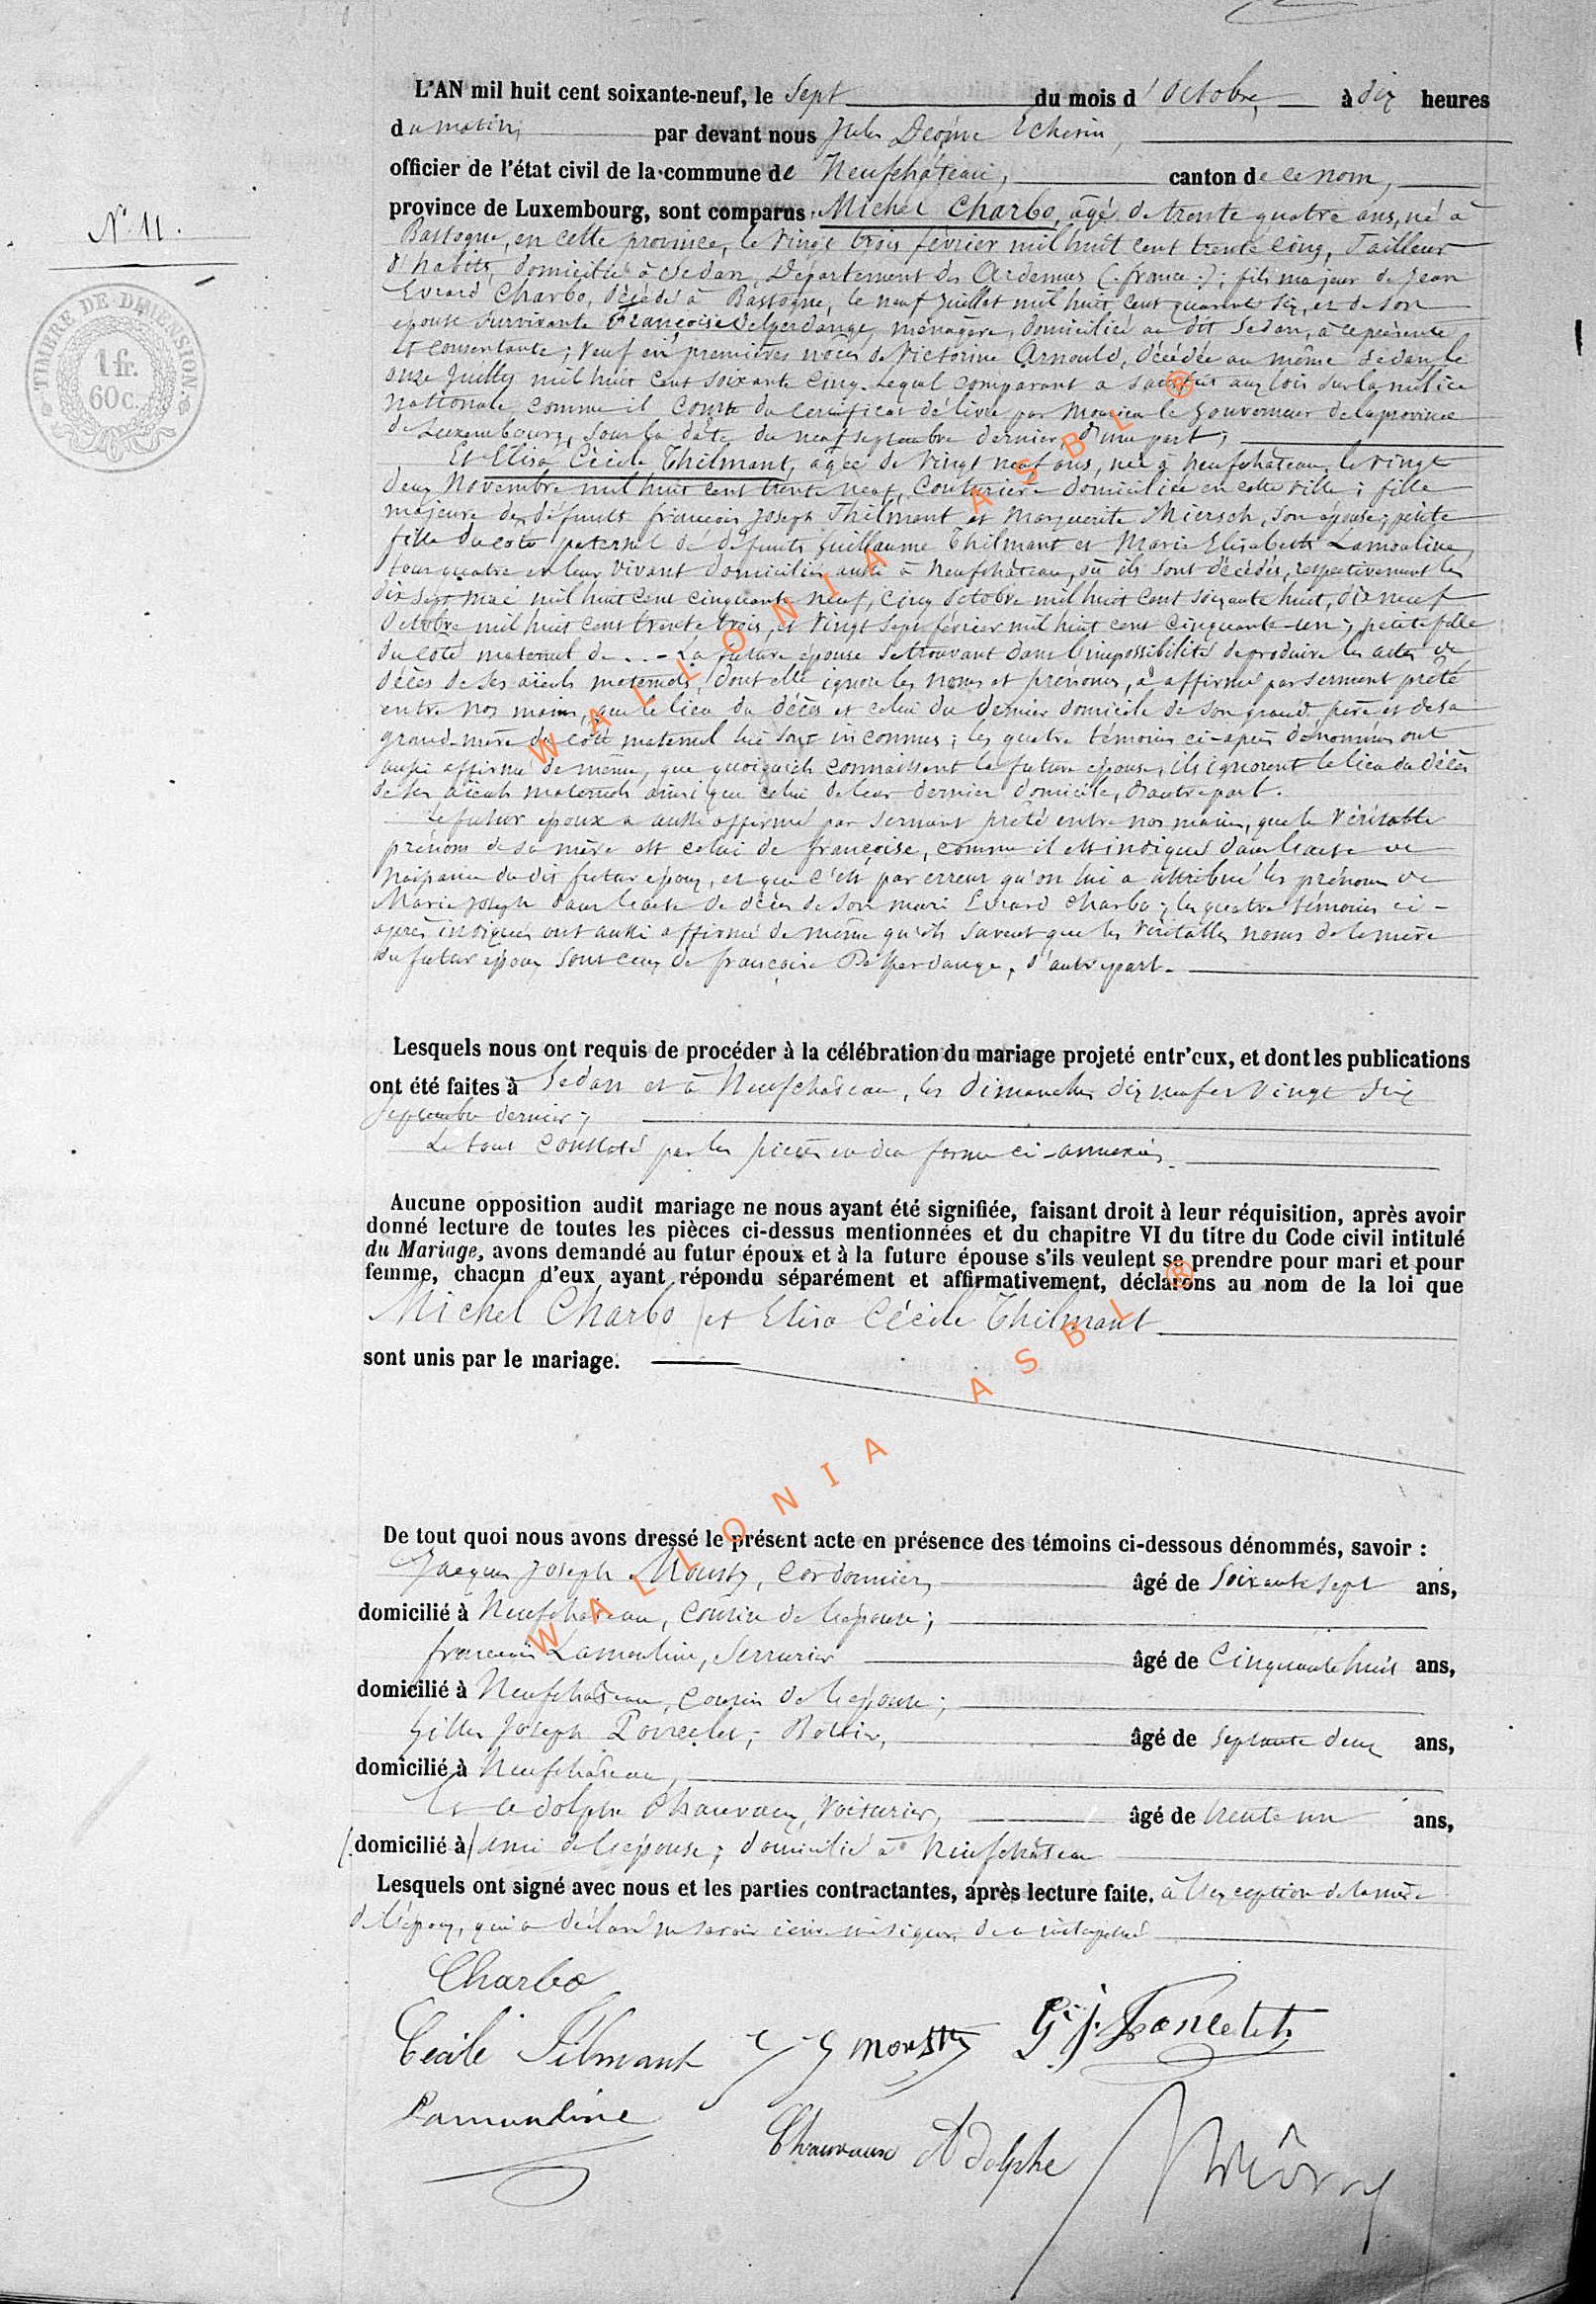 L'AN mil huit cent soixante-neuf, le Sept du mois d'Octobre, à dix heures
du matin, par devant nous Jules Deôme Echevin,
officier de l'état civil de la commune de Neufchâteau, canton de ce nom,
province de Luxembourg, sont comparus Michel Charbo, âgé de trente quatre ans, né à
Bastogne, en cette province, le vingt trois février mil huit cent trente cinq, Tailleur
d'habits, domicilié à Sedan, Département des Ardennes (france); fils majeur de Jean
Evrard Charbo, décédé à Bastogne, le neuf juillet mil huit cent quarante six, et de son
épouse survivante Françoise Delperdange, ménagère, domiciliée au dit Sedan, à ce présente
et consentante; veuf en premières noces de Victorine Arnould, décédée au même Sedan, le
onze Juillet mil huit cent soixante cinq. Lequel comparant a satisfait aux lois sur la milice
nationale, comme il conste du certificat délivré par Monsieur le Gouverneur de la province
de Luxembourg, sous la date du neuf septembre dernier, d'une part;
Et Elisa Cécile Thilmant, âgée de vingt neuf ans, née à Neufchâteau, le vingt
deux Novembre mil huit cent trente neuf, Couturière domiciliée en cette ville; fille
majeure des défunts françois Joseph Thilmant et Marguerite Miersch, son épouse; petite
fille du coté paternel de défunts Guillaume Thilmant et Marie Elisabeth Lamouline,
tous quatre en leur vivant domiciliés aussi à Neufchâteau, où ils sont décédés, respectivement les
dix sept mai mil huit cent cinquante neuf, cinq Octobre mil huit cent soixante huit, dix neuf
Octobre mil huit cent trente trois, et vingt sept février mil huit cent cinquante-un; petite fille
du coté maternel de ... - La future épouse se trouvant dans l'impossibilité de produire les actes de
décès de ses aïeuls maternels, dont elle ignore les noms et prénoms, a affirmé par serment prêté
entre nos mains, que le lieu du décès et celui du dernier domicile de son grand père et de sa
grand-mère du coté maternel lui sont inconnus; les quatre témoins ci-après dénommés ont
aussi affirmé de même, que quoiqu'ils connaissent la future épouse, ils ignorent le lieu du décès
de ses aïeuls maternels ainsi que celui de leur dernier domicile, d'autre part.
Le futur époux a aussi affirmé par serment prêté entre nos mains, que le véritable
prénom de sa mère est celui de françoise, comme il est indiqué dans l'acte de
naissance du dit futur époux, et que c'est par erreur qu'on lui a attribué les prénoms de
Marie Joseph dans l'acte de décès de son mari Evrard Charbo; les quatre témoins ci-
après indiqués ont aussi affirmé de même qu'ils savent que les véritables noms de la mère
du futur époux sont ceux de françoise Delperdange, d'autre part.
Lesquels nous ont requis de procéder à la célébration du mariage projeté entr'eux, et dont les publications
ont été faites à Sedan et à Neufchâteau, les dimanches dix neuf et vingt six
Septembre dernier;
Le tout constaté par les pièces en due forme ci-annexées.
Aucune opposition audit mariage ne nous ayant été signifiée, faisant droit à leur réquisition, après avoir
donné lecture de toutes les pièces ci-dessus mentionnées et du chapitre VI du titre du Code civil intitulé
du Mariage, avons demandé au futur époux et à la future épouse s'ils veulent se prendre pour mari et pour
femme, chacun d'eux ayant répondu séparément et affirmativement, déclarons au nom de la loi que
Michel Charbo et Elisa Cécile Thilmant
sont unis par le mariage.
De tout quoi nous avons dressé le présent acte en présence des témoins ci-dessous dénommés, savoir :
Jacques Joseph Mousty, Cordonnier, âgé de Soixante sept ans,
domicilié à Neufchâteau, cousin de l'épouse;
françois Lamouline, Serrurier âgé de Cinquante huit ans,
domicilié à Neufchâteau, cousin de l'épouse;
Gilles Joseph Poncelet, Bottier, âgé de Septante deux ans,
domicilié à Neufchâteau,
Et Adolphe Chauvaux, Voiturier, âgé de trente un ans,
(domicilié à) ami de l'épouse; domicilié à Neufchâteau
Lesquels ont signé avec nous et les parties contractantes, après lecture faite, à l'exception de la mère
de l'époux, qui a déclaré ne savoir écrire ni signer, de ce interpellée
Charbo
Cécile Tilmant J J Mousty G. J. Poncelet
Lamouline
Chauvaux Adolphe
N° 11.
TIMBRE DE DIMENSION.
1 fr.
60c.
WALLONIA ASBL ®
WALLONIA ASBL ®